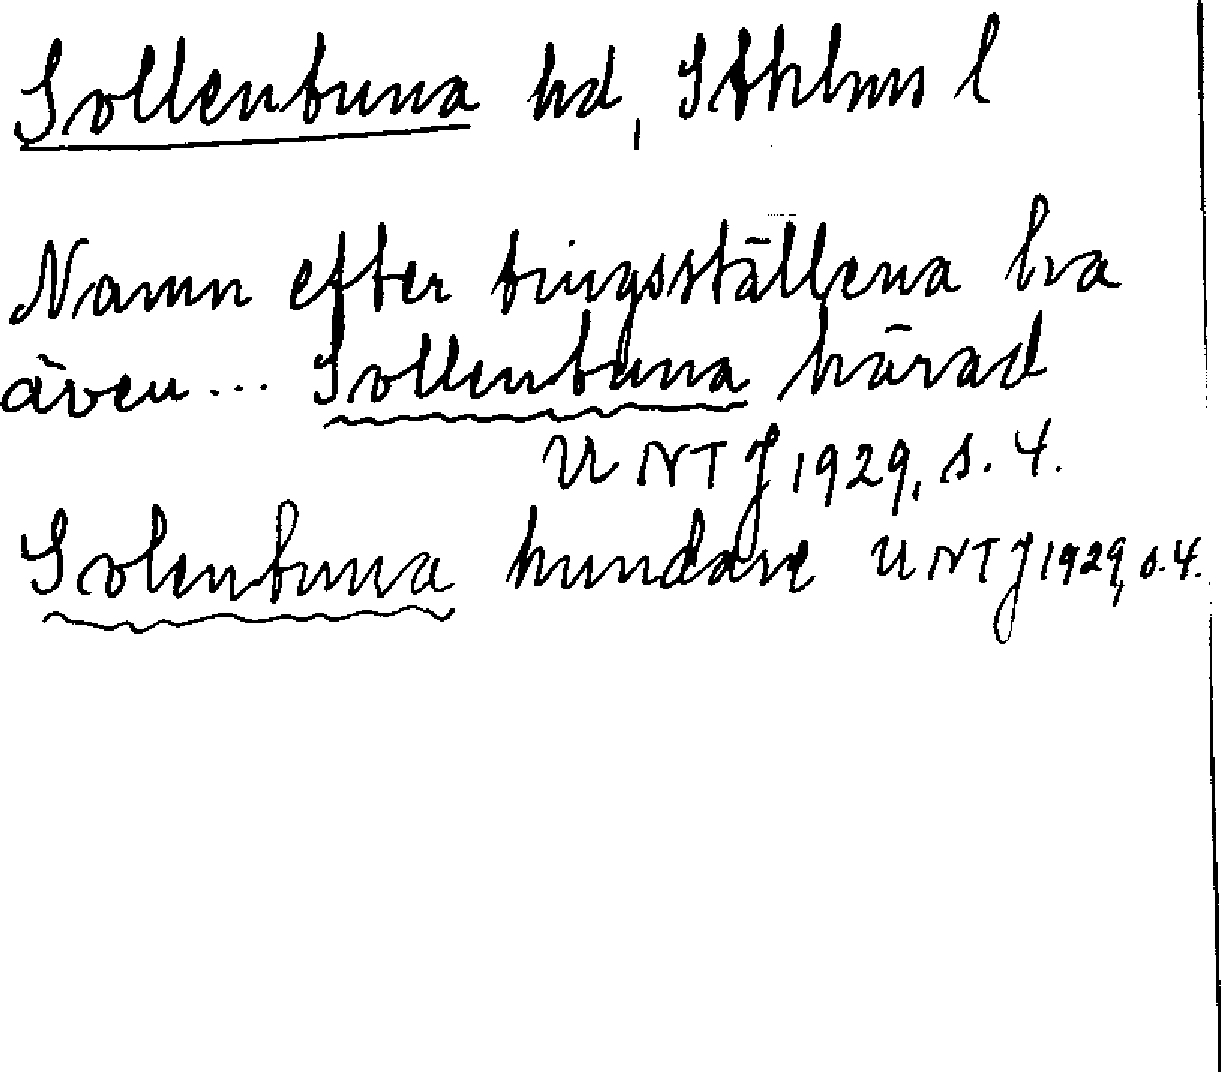 Sollentuna hd, Sthlms l
Namn efter tingsställena ha
även... Sollentuna härad
UNTJ 1929, s. 4.
Solentuna hundare UNTJ 1929, s. 4.